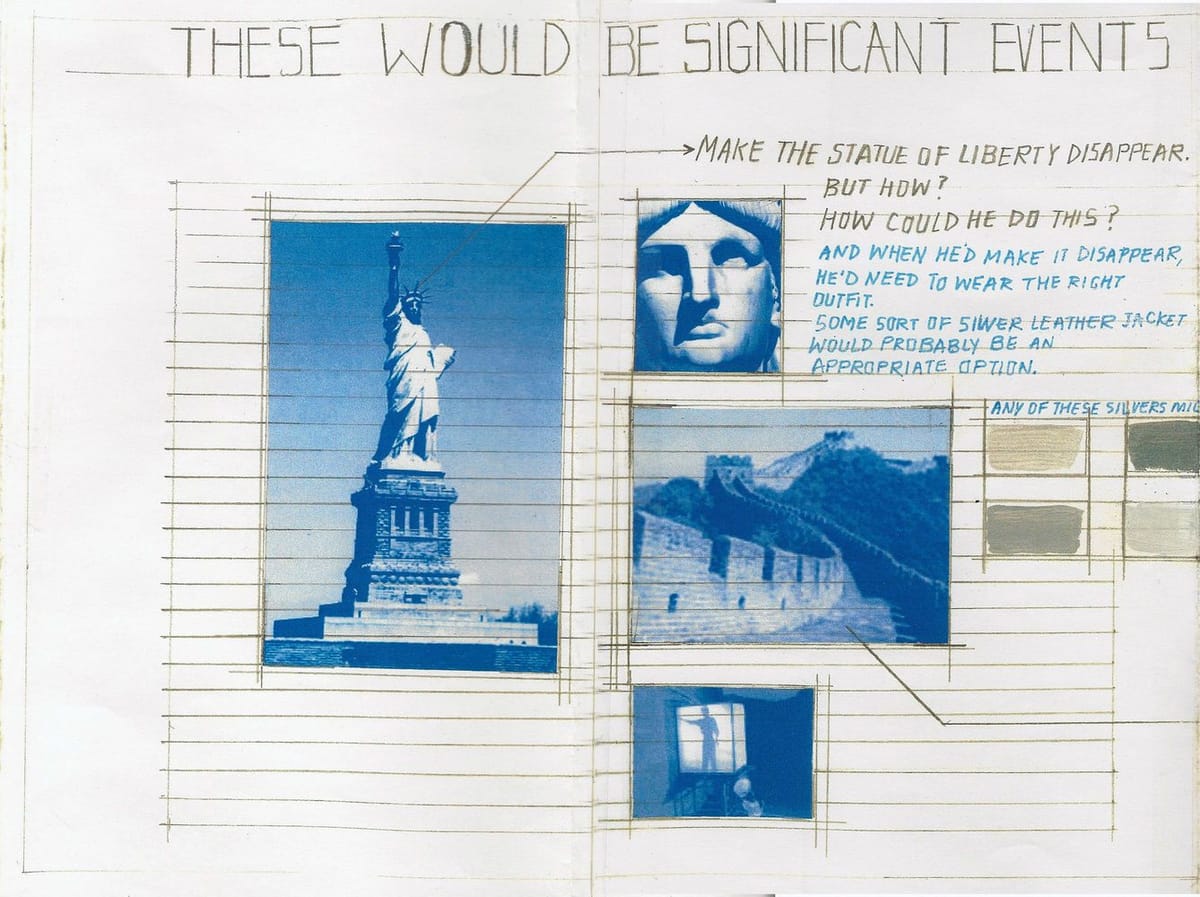 THESE WOULD BE SIGNIFICANT EVENTS
MAKE THE STATUE OF LIBERTY DISAPPEAR.
BUT HOW?
HOW COULD HE DO THIS?
AND WHEN HE'D MAKE IT DISAPPEAR,
HE'D NEED TO WEAR THE RIGHT
OUTFIT.
SOME SORT OF SILVER LEATHER JACKET
WOULD PROBABLY BE AN
APPROPRIATE OPTION.
ANY OF THESE SILVERS